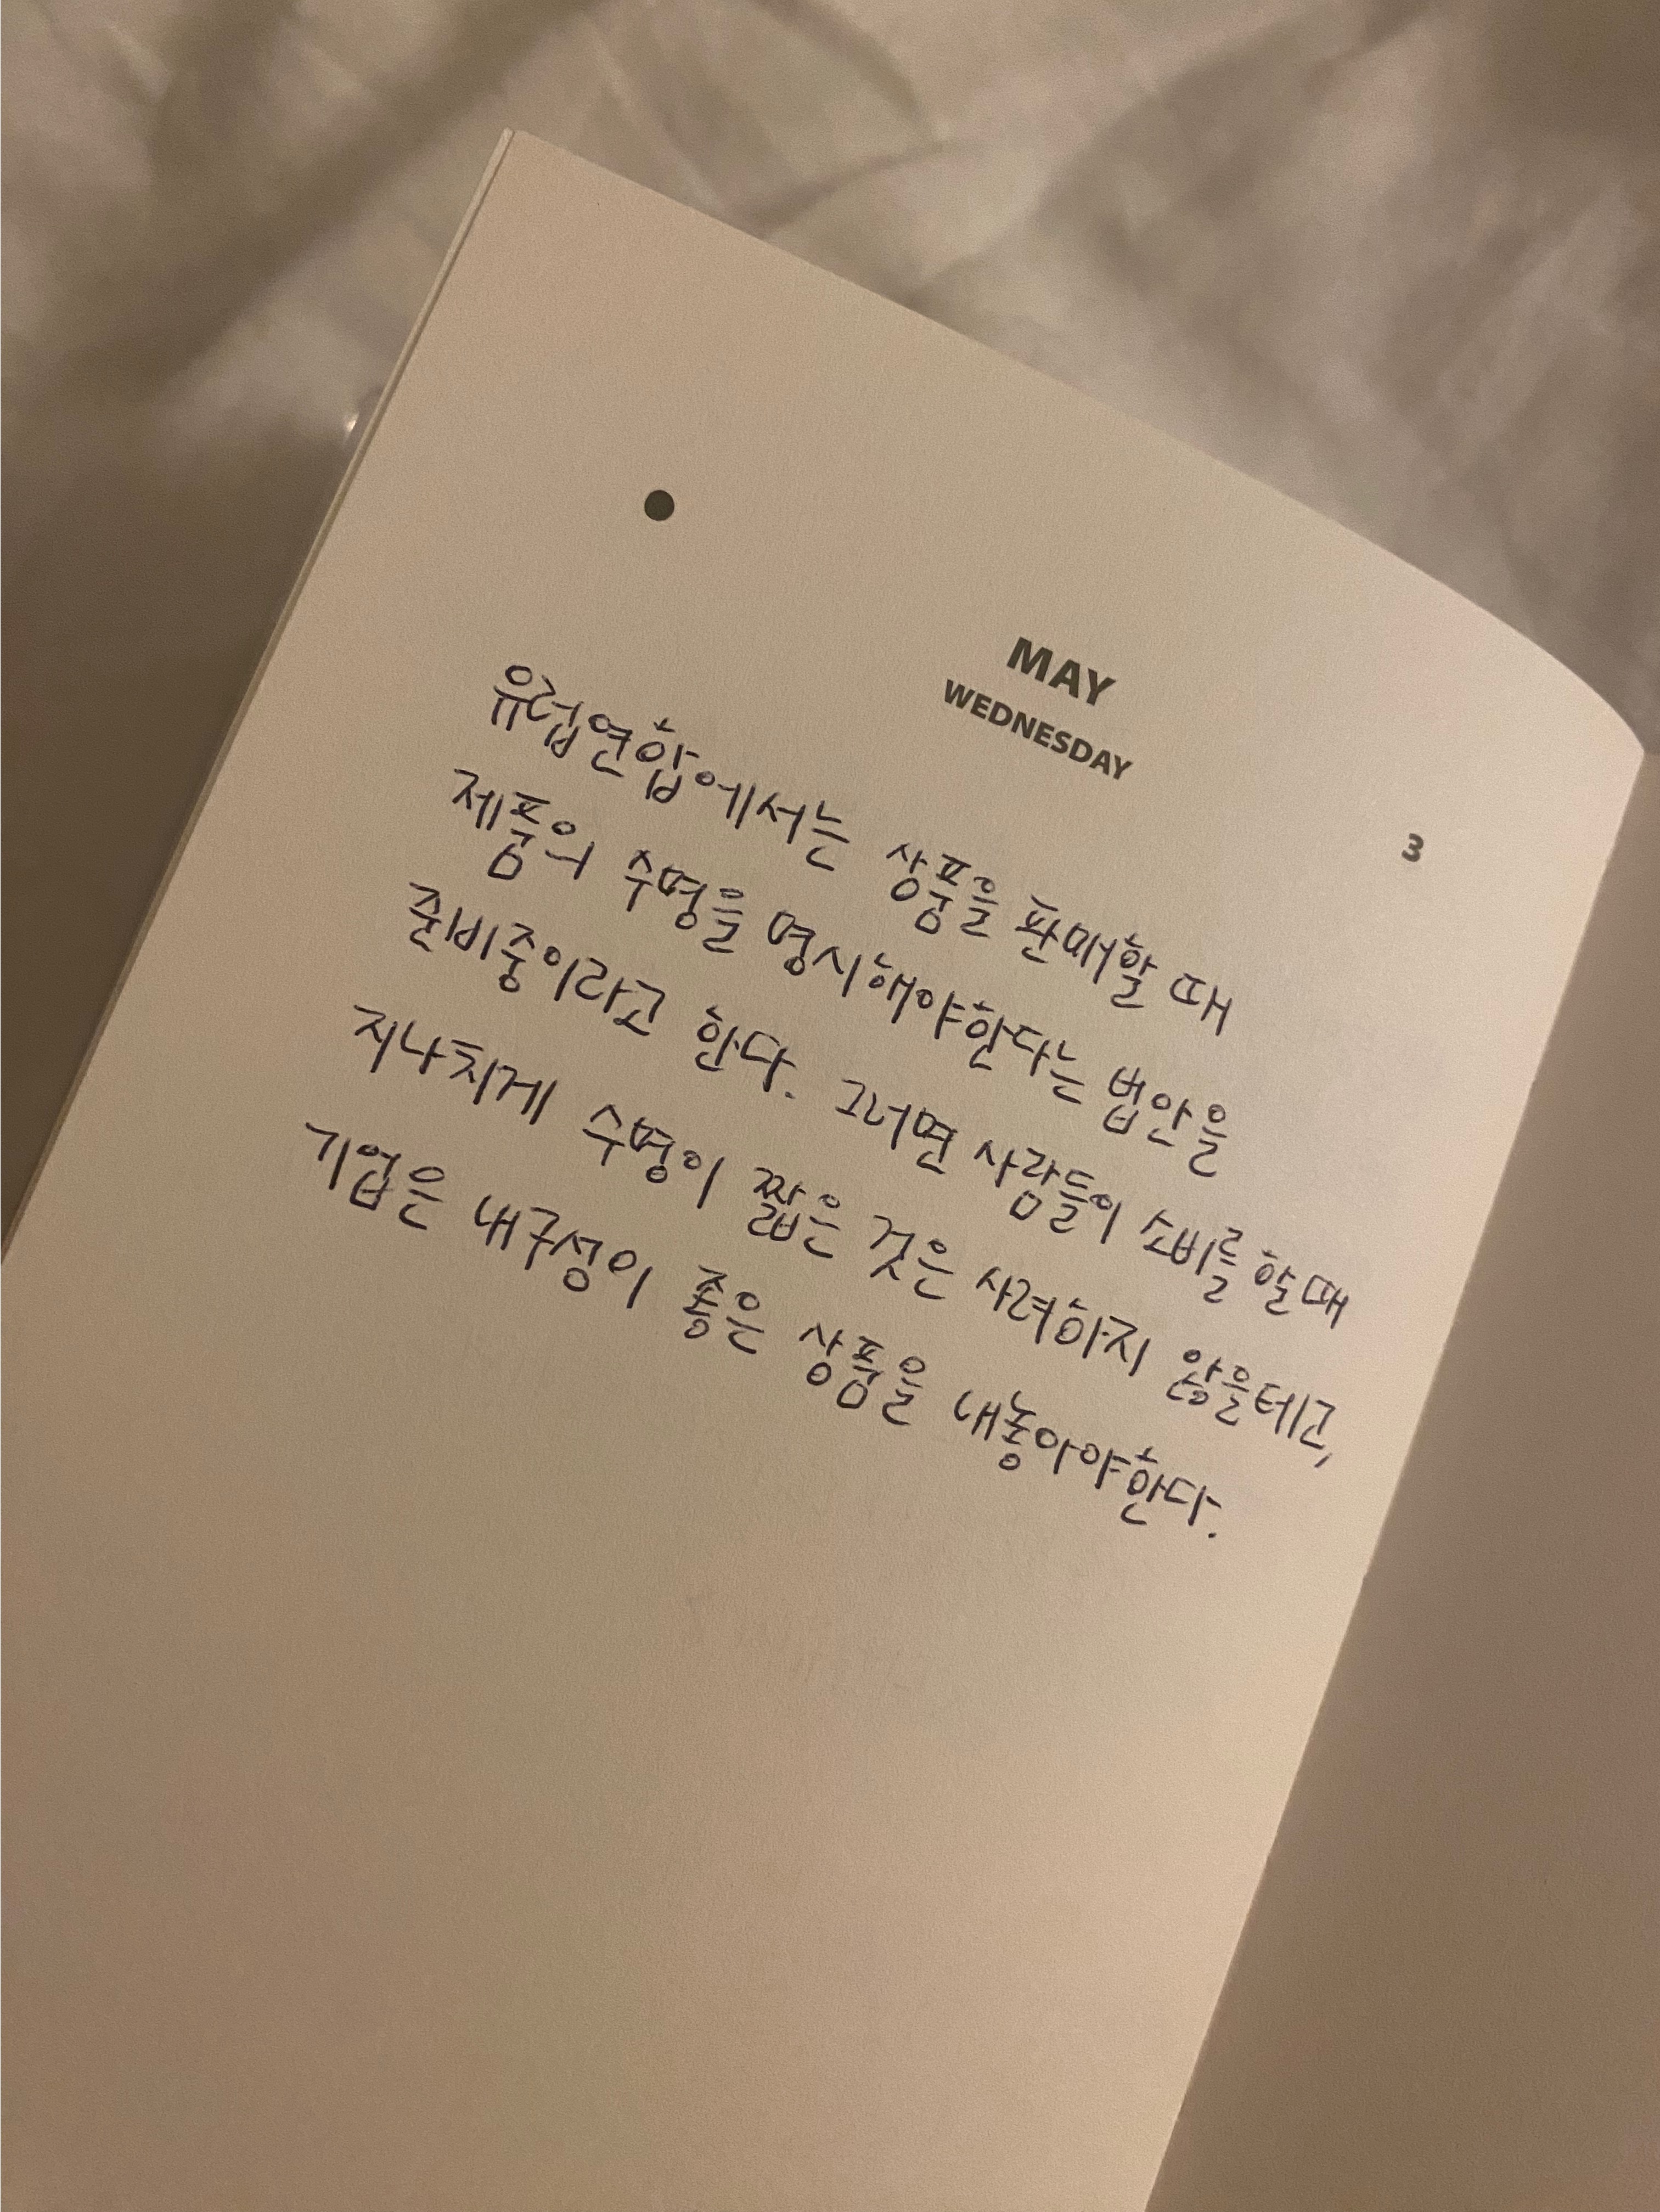 MAY
WEDNESDAY
3
유럽연합에서는 상품을 판매할 때
제품의 수명을 명시해야한다는 법안을
준비중이라고 한다. 그러면 사람들이 소비를 할때
지나치게 수명이 짧은 것은 사려하지 않을테고,
기업은 내구성이 좋은 상품을 내놓아야한다.